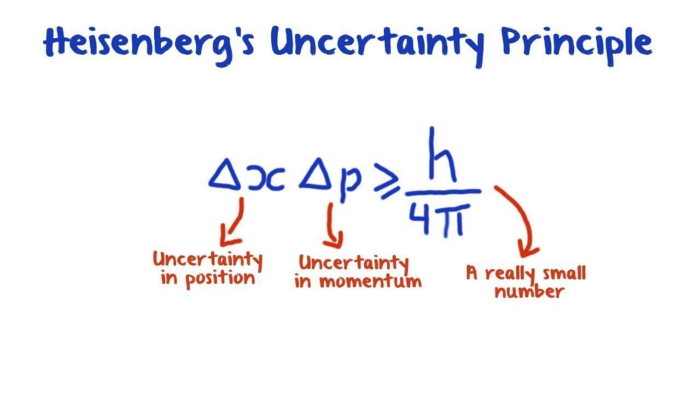 Heisenberg's Uncertainty Principle
Δx Δp ≥ h
4π
Uncertainty
in position
Uncertainty
in momentum
A really small
number